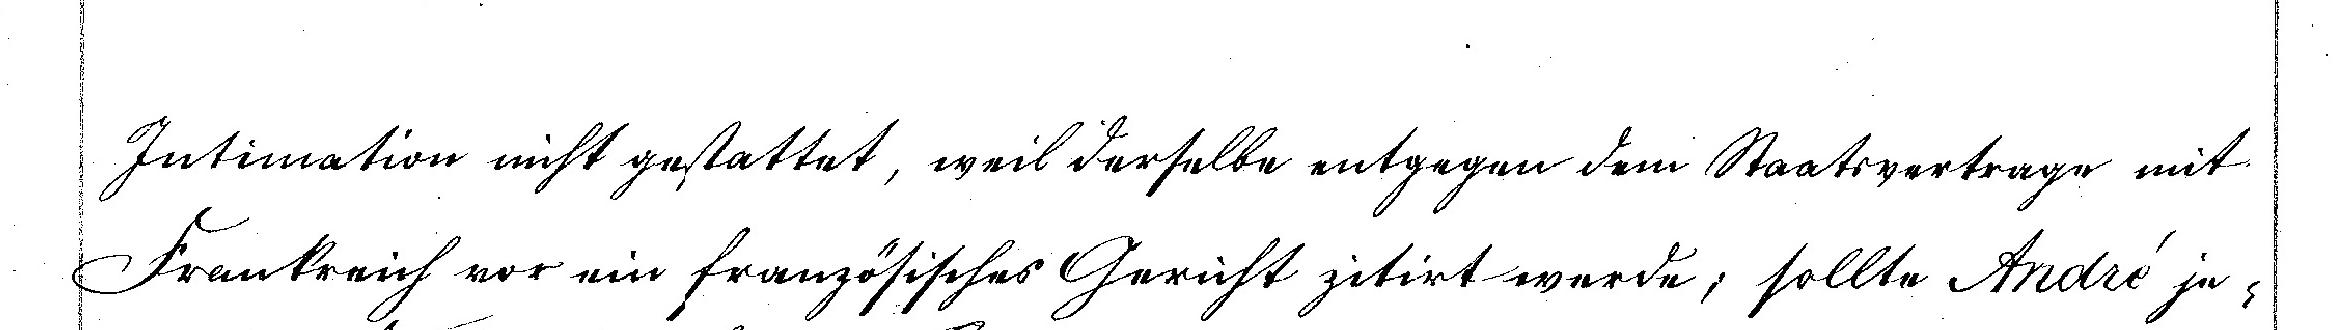 Intimation nicht gestattet, weil derselbe entgegen dem Staatsvertrage mit
Frankreich vor ein französisches Gericht zitirt werde; sollte André je-